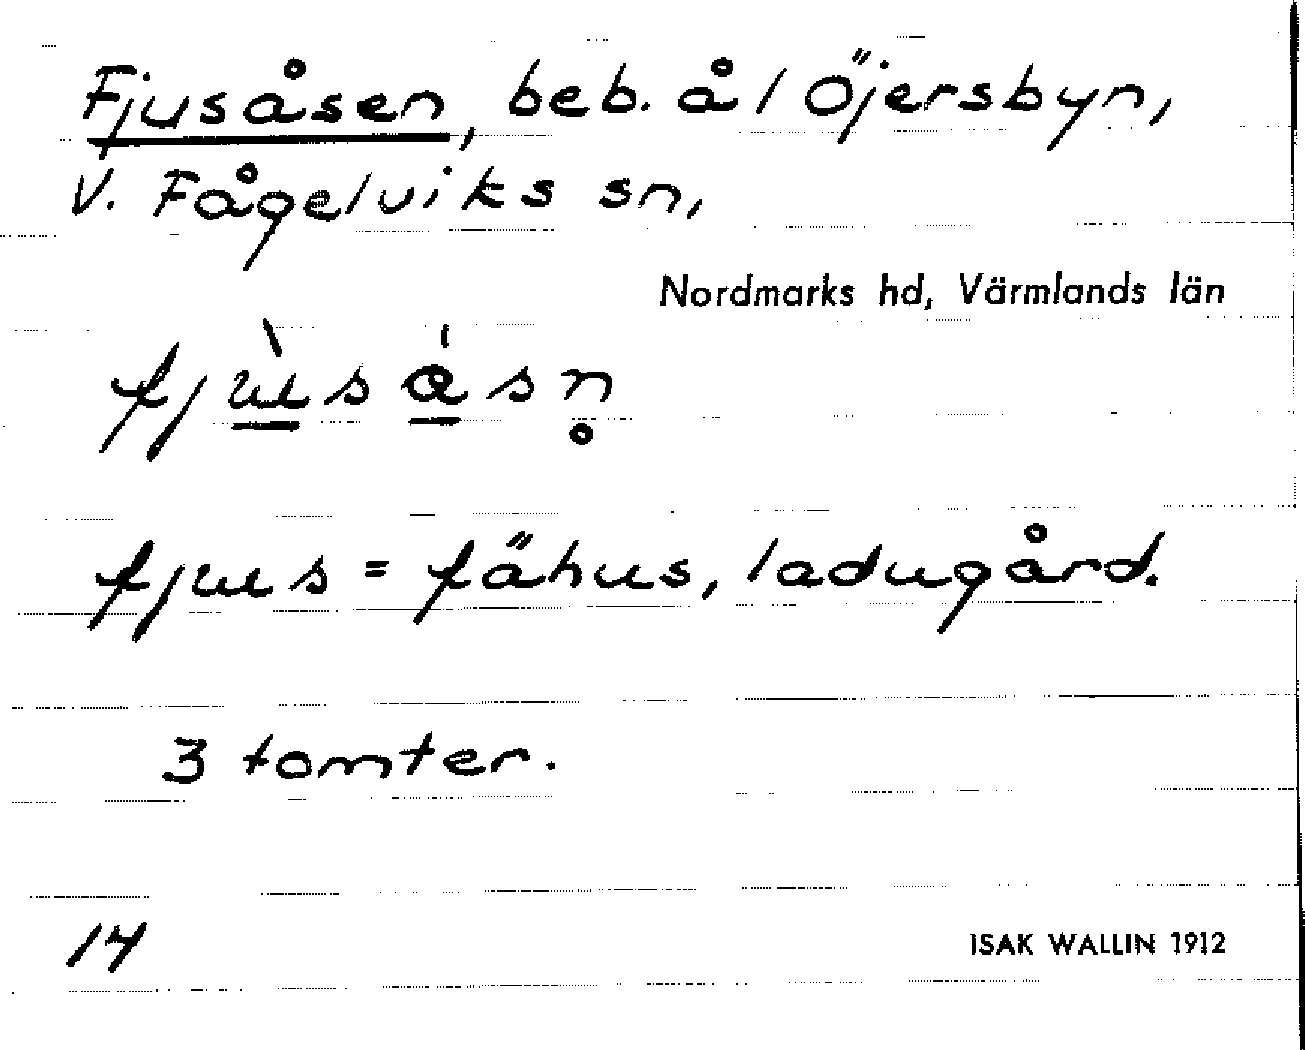 Fjusåsen, beb. å 1 Öjersbyn,
V. Fågelviks sn,
Nordmarks hd, Värmlands län
fjùsåsn̥
fjus = fähus, ladugård.
3 tomter.
14
ISAK WALLIN 1912